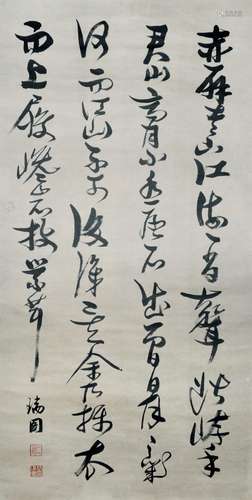 赤壁之下江流有聲斷岸千
尺山高月小水落石出曾日月之幾
何而江山不可復識矣余乃攝衣
而上履巉岩披蒙茸
瑞圖